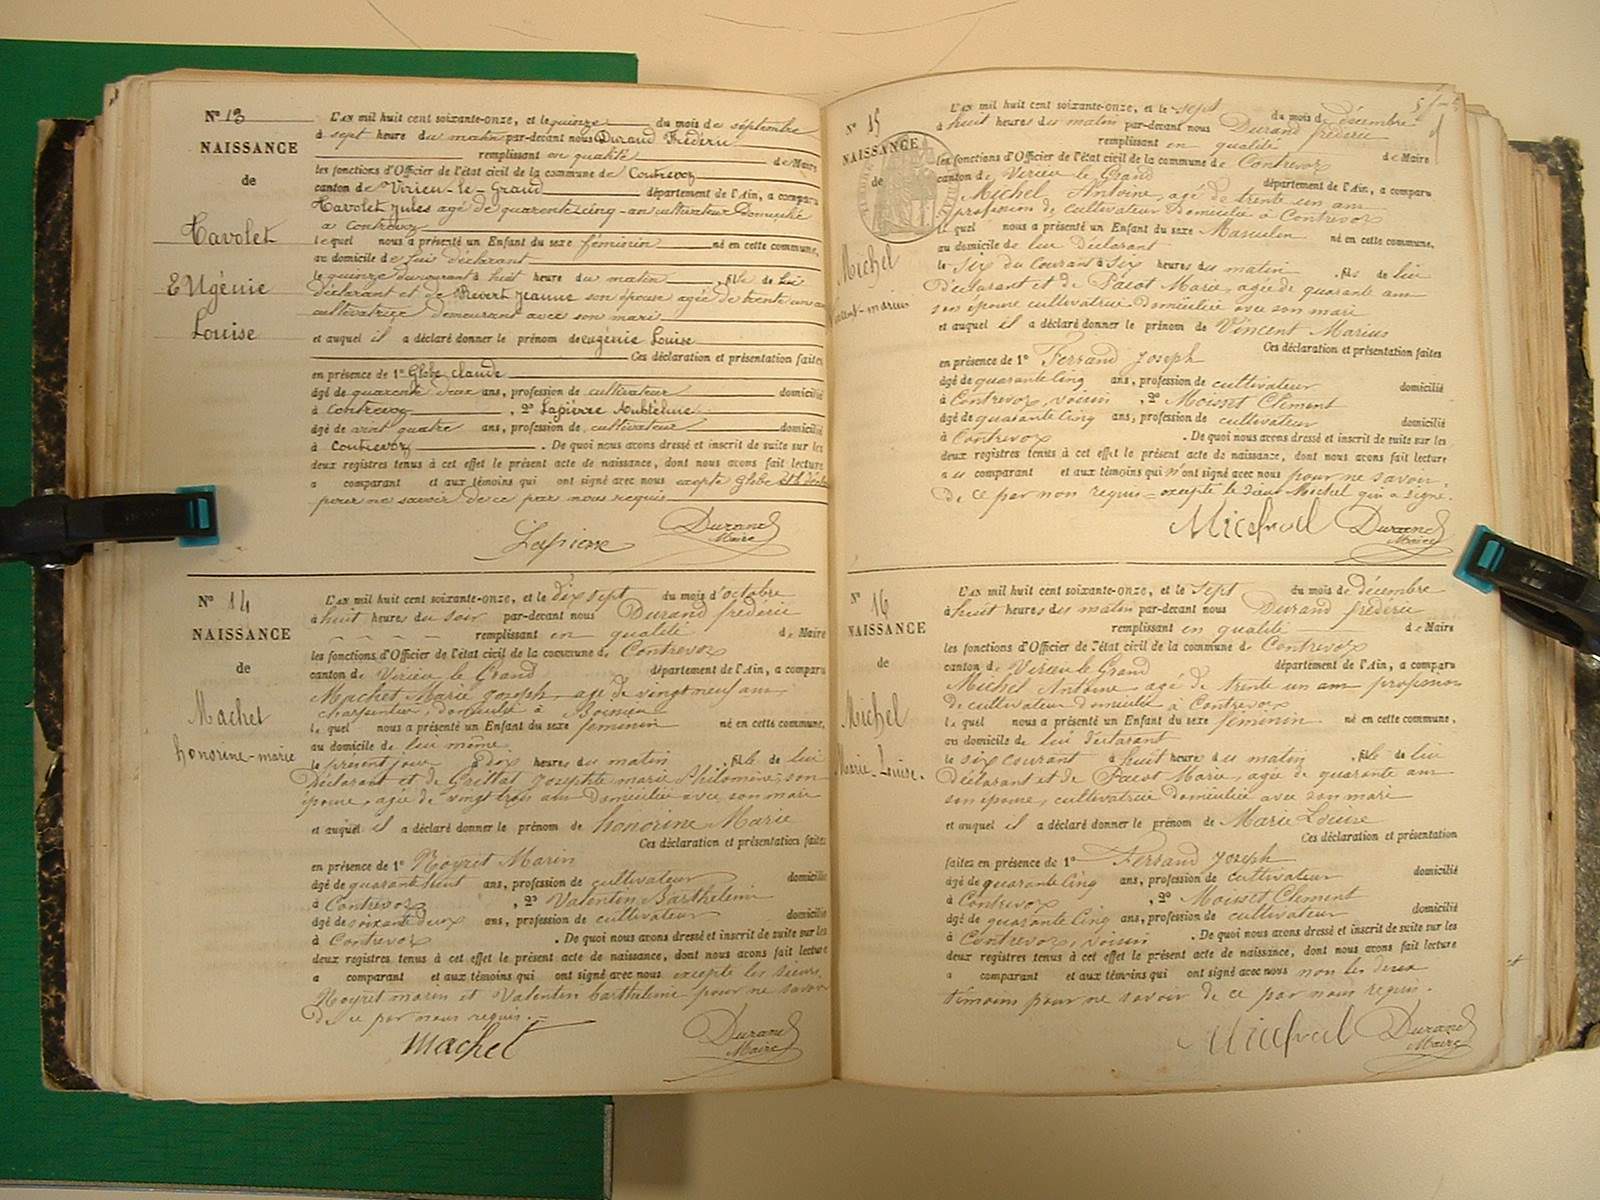 N° 13
NAISSANCE
de
Tavolet
Eugénie
Louise
L'AN mil huit cent soixante-onze, et le quinze du mois de septembre
à sept heure du matin par-devant nous Durand Frédéric
remplissant en qualité de Maire
les fonctions d'Officier de l'état civil de la commune de Contrevoz
canton de Virieu-le-Grand département de l'Ain, a comparu
Tavolet Jules agé de quarente cinq ans cultivateur Domicilié
a Contrevoz
lequel nous a présenté un Enfant du sexe féminin né en cette commune,
au domicile de lui déclarant
le quinze du courant à huit heure du matin, fille de lui
déclarant et de Revert Jeanne son épouse agée de trente un ans
cultivatrice demeurant avec son mari
et auquel il a déclaré donner le prénom de eugénie Louise
Ces déclaration et présentation faites
en présence de 1° Globe claude
âgé de quarente deux ans, profession de cultivateur domicilié
à Contrevoz, 2° Lapierre Anthelme
âgé de vint quatre ans, profession de cultivateur domicilié
à Contrevoz. De quoi nous avons dressé et inscrit de suite sur les
deux registres tenus à cet effet le présent acte de naissance, dont nous avons fait lecture
a comparant et aux témoins qui ont signé avec nous exepté Globe
pour ne savoir de ce par nous requis
Lapierre Durand
Maire
N° 14
NAISSANCE
de
Machet
honorine-marie
L'AN mil huit cent soixante-onze, et le dix sept du mois d'octobre
à huit heures du soir par-devant nous Durand frédéric
remplissant en qualité de Maire
les fonctions d'Officier de l'état civil de la commune de Contrevoz
canton de Virieu le Grand département de l'Ain, a comparu
Machet Marie Joseph, agé de vingt neuf ans
charpentier, domicilié à
lequel nous a présenté un Enfant du sexe feminin né en cette commune,
au domicile de lui même
le présent jour à dix heures du matin, fille de lui
Déclarant et de Grillat Josephte marie Philomène, son
épouse, agée de vingt trois ans Domiciliée avec son mari
et auquel il a déclaré donner le prénom de honorine Marie
Ces déclaration et présentations faites
en présence de 1° Noyret Marin
âgé de quarante huit ans, profession de cultivateur domicilié
à Contrevoz, 2° Valentin Barthelemi
âgé de soixante deux ans, profession de cultivateur domicilié
à Contrevoz. De quoi nous avons dressé et inscrit de suite sur les
deux registres tenus à cet effet le présent acte de naissance, dont nous avons fait lecture
a comparant et aux témoins qui ont signé avec nous excepte les sieurs
Noyret marin et Valentin barthelemi pour ne savoir
De ce par nous requis.=
Machet Durand
Maire
N° 15
NAISSANCE
de
Michel
L'AN mil huit cent soixante-onze, et le sept du mois de décembre
à huit heures du matin par-devant nous Durand frédéric
remplissant en qualité de Maire
les fonctions d'Officier de l'état civil de la commune de Contrevoz
canton de Virieu le Grand département de l'Ain, a comparu
Michel Antoine, agé de trente un ans
profession de cultivateur Domicilié à Contrevoz
lequel nous a présenté un Enfant du sexe Masculin né en cette commune,
au domicile de lui déclarant
le six du courant à six heures du matin, fils de lui
Déclarant et de Pacot Marie, agée de quarante ans
son épouse cultivatrice Domiciliée avec son mari
et auquel il a déclaré donner le prénom de Vincent Marius
Ces déclaration et présentation faites
en présence de 1° Ferrand Joseph
âgé de quarante cinq ans, profession de cultivateur domicilié
à Contrevoz, voisin, 2° Moisset Clement
âgé de quarante cinq ans, profession de cultivateur domicilié
à Contrevoz. De quoi nous avons dressé et inscrit de suite sur les
deux registres tenus à cet effet le présent acte de naissance, dont nous avons fait lecture
a u comparant et aux témoins qui n'ont signé avec nous pour ne savoir,
De ce par nous requis = excepte le sieur Michel qui a signé.
Michel Durand
Maire
N° 16
NAISSANCE
de
Michel
Marie-Louise.
L'AN mil huit cent soixante-onze, et le sept du mois de décembre
à huit heures du matin par-devant nous Durand frédéric
remplissant en qualité de Maire
les fonctions d'Officier de l'état civil de la commune de Contrevoz
canton de Virieu le Grand département de l'Ain, a comparu
Michel Antoine, agé de trente un ans profession
de cultivateur domicilié à Contrevoz
lequel nous a présenté un Enfant du sexe feminin né en cette commune,
au domicile de lui déclarant
le six courant à huit heures du matin, fille de lui
Déclarant et de Pacot Marie, agée de quarante ans
son épouse, cultivatrice domiciliée avec son mari
et auquel il a déclaré donner le prénom de Marie Louise
Ces déclaration et présentation
faites en présence de 1° Ferrand Joseph
âgé de quarante cinq ans, profession de cultivateur domicilié
à Contrevoz, 2° Moisset Clement
âgé de quarante cinq ans, profession de cultivateur domicilié
à Contrevoz, voisin. De quoi nous avons dressé et inscrit de suite sur les
deux registres tenus à cet effet le présent acte de naissance, dont nous avons fait lecture
a comparant et aux témoins qui ont signé avec nous non les deux
témoins pour ne savoir de ce par nous requis.
Michel Durand
Maire